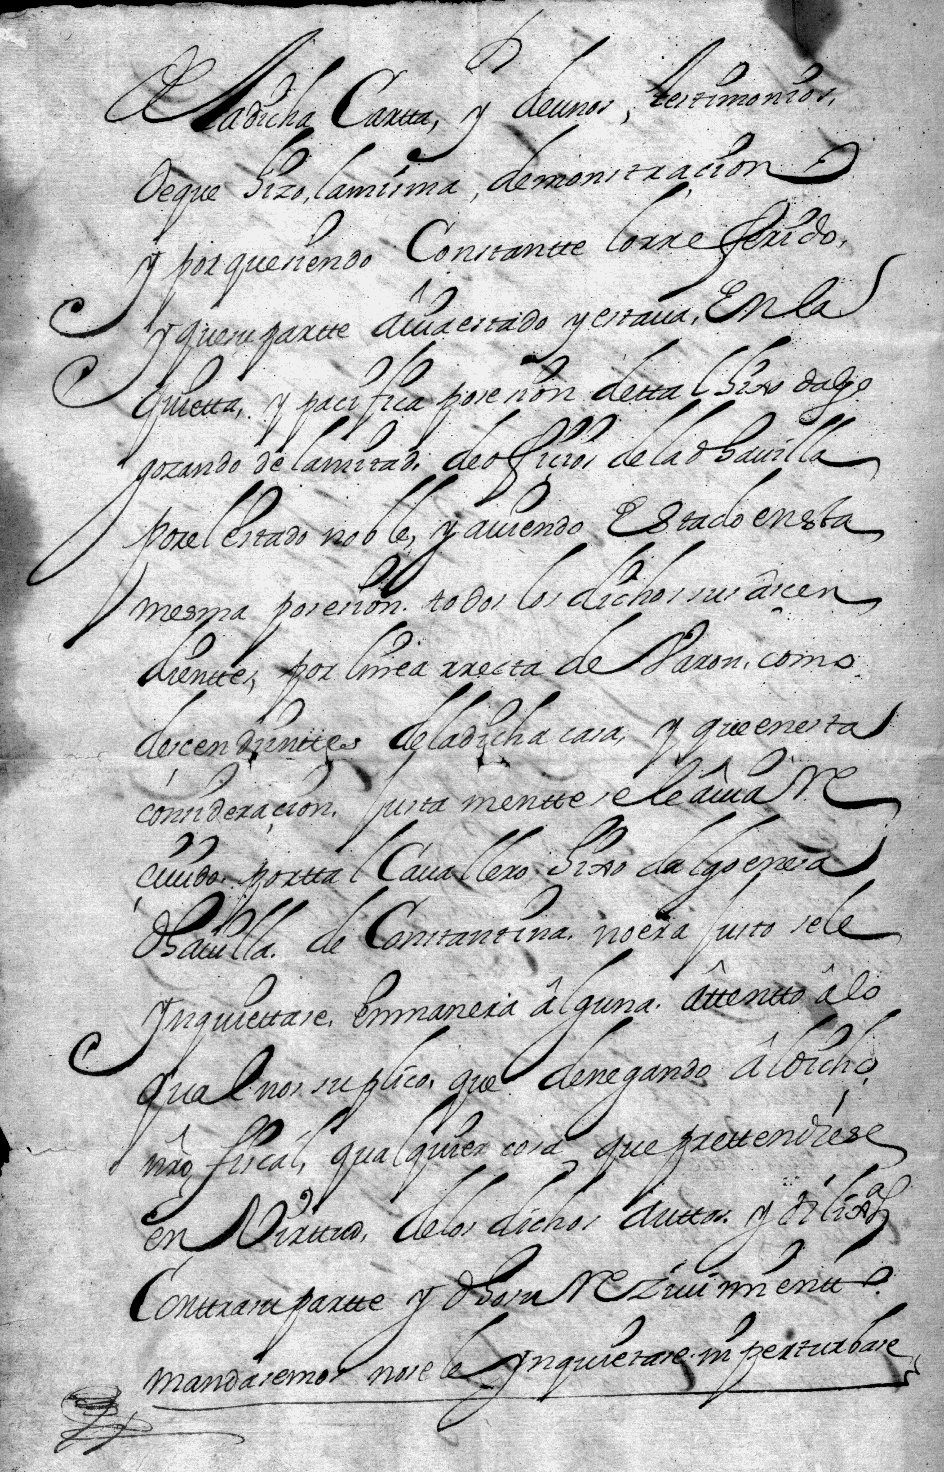 De la dicha Cartta, y de unos, testimonios,
de que hizo, la misma, demonstraçion
y por que siendo Constantte lo rreferido,
y que su partte âuia estado y estaua, En la
quietta, y pacifica posesion de ttal hixo dalgo
gozando de la mitad, de offiçios de la dha uilla
por el estado noble, y auiendo Estado en esta
mesma posesion. todos los dichos sus asçen
dientte, por linea rrecta de Varon, como
descendienttes de la dicha casa, y que en esta
considerazion, justa mentte se le âuia Re
ciuido. por ttal Cauallero hixo dalgo en esa
dha uilla. de Constantina, no era justo se le
ynquiettase. en manera âlguna. âttentto â lo
qual nos suplico, que denegando âl dicho
nrô fiscal, qualquier cosa, que prettendiese
en Virttud, de los dichos âuttos, y dilixas
Conttra su partte y dho su Rezeuimientto.
mandasemos no se le ynquietase ni perturbase